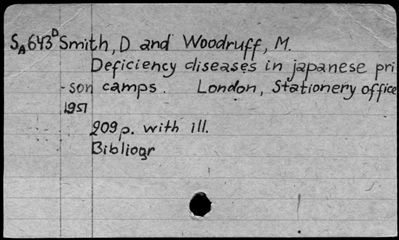 SA643D Smith, D and Woodruff, M.
Deficiency diseases in japanese pri
-son camps. London, Stationery office
1951
209p. with ill.
Bibliogr